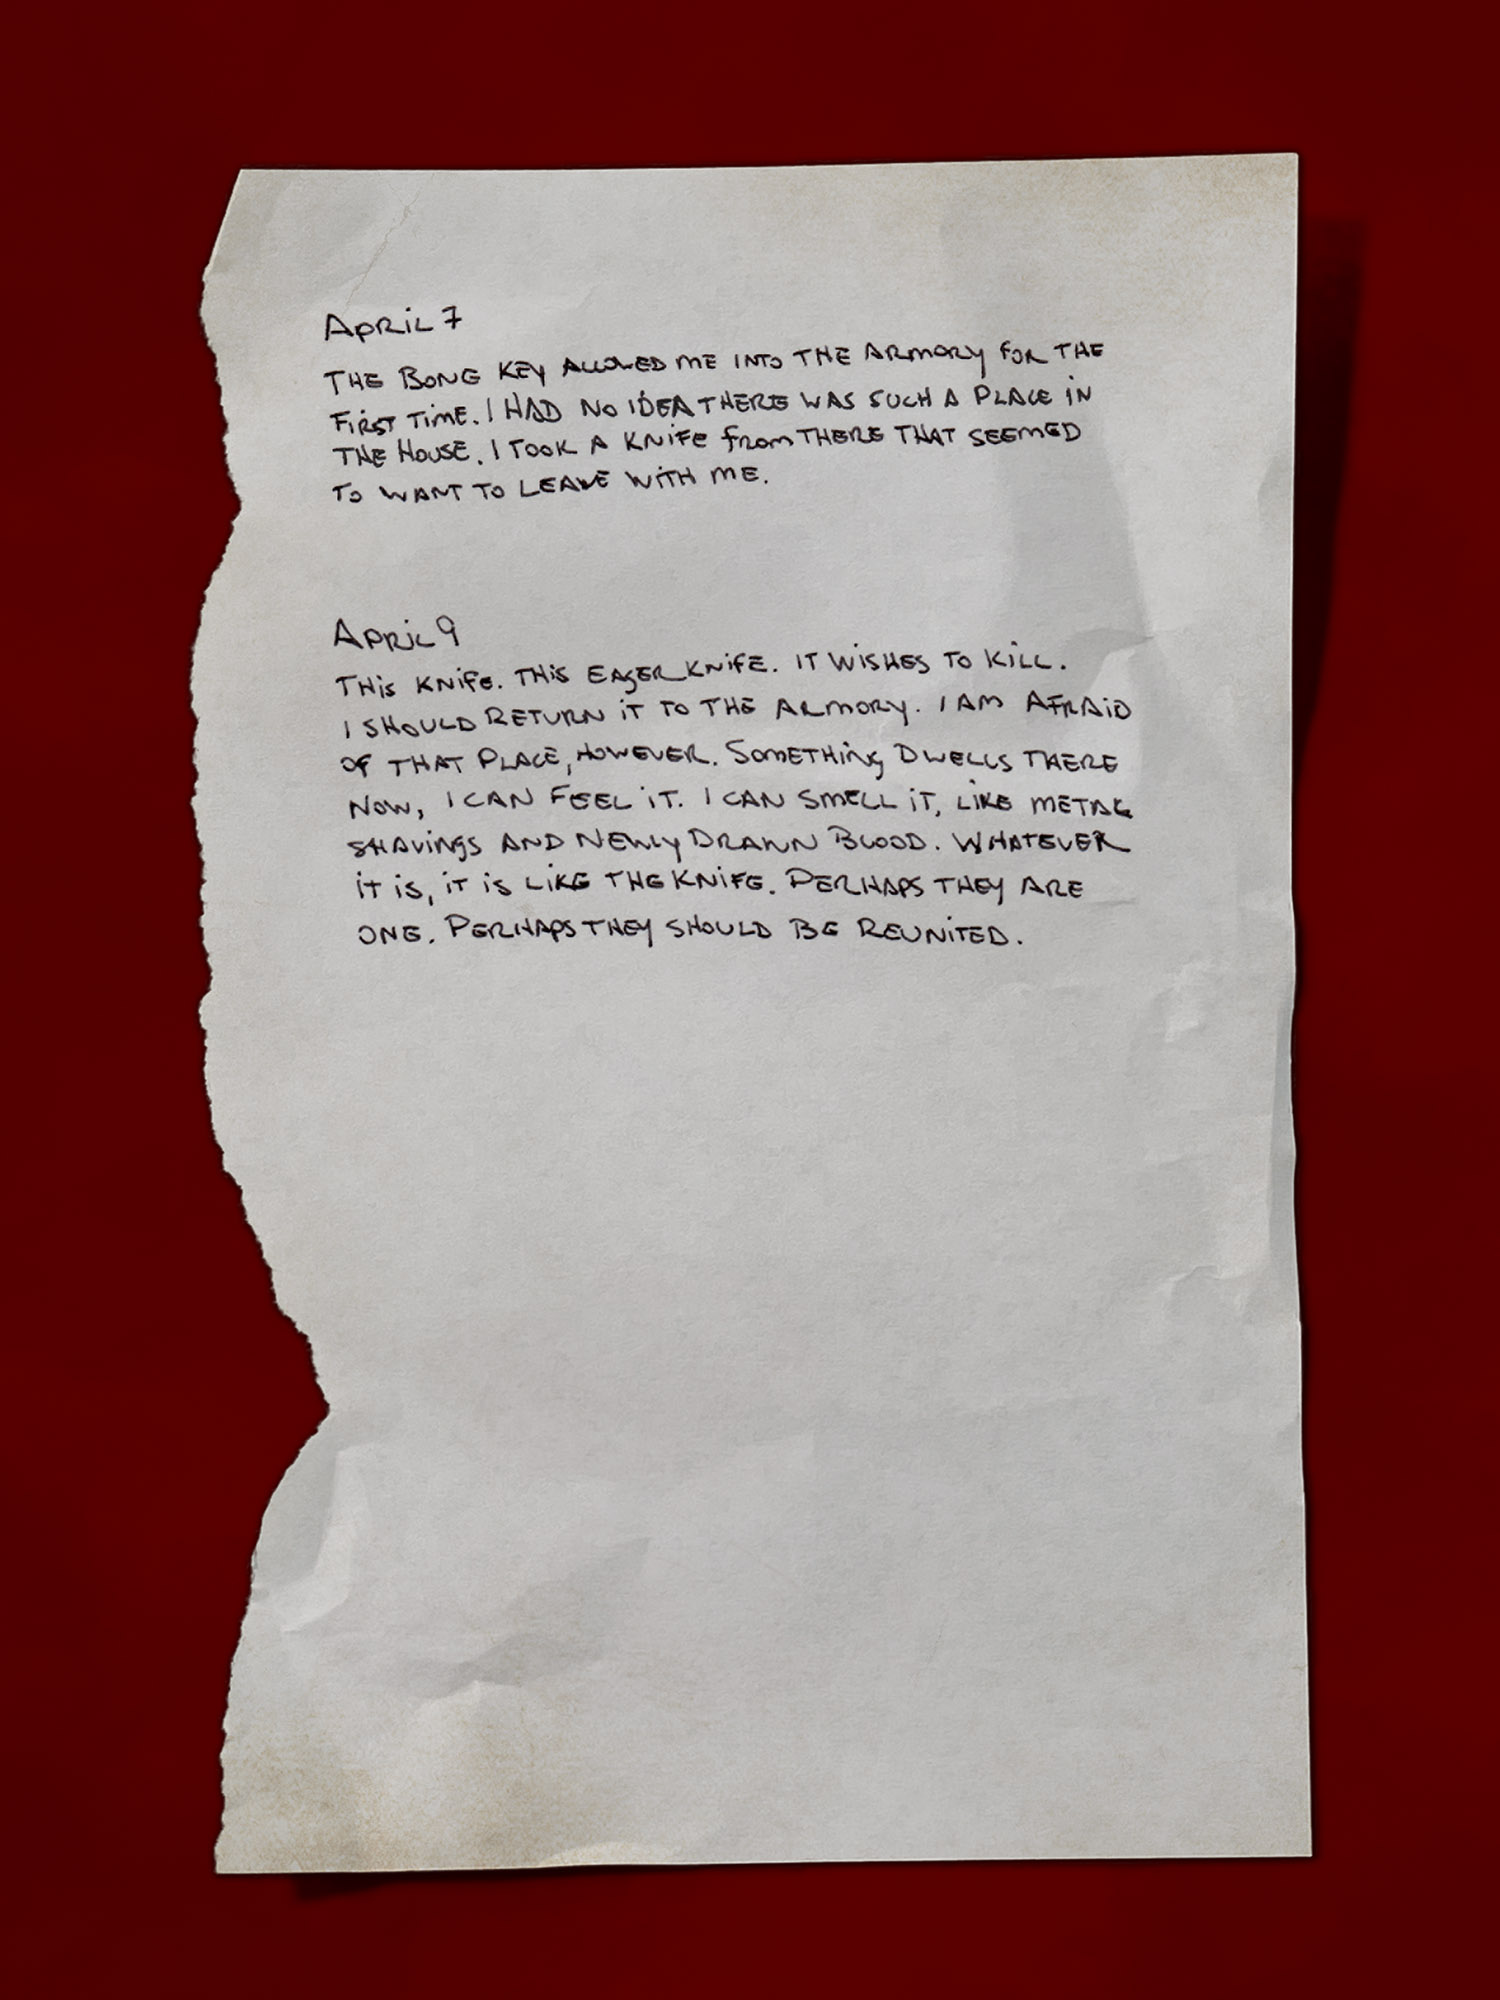 April 7
THE BONG KEY ALLOWED ME INTO THE ARMORY FOR THE
FIRST TIME. I HAD NO IDEA THERE WAS SUCH A PLACE IN
THE HOUSE. I TOOK A KNIFE from THERE THAT SEEMED
TO WANT TO LEAVE WITH ME.
April 9
THIS KNIFE. THIS EAGER KNIFE. IT WISHES TO KILL.
I SHOULD RETURN IT TO THE ARMORY. I AM AFRAID
OF THAT PLACE, HOWEVER. SOMETHING DWELLS THERE
NOW, I CAN FEEL IT. I CAN SMELL IT, LIKE METAL
SHAVINGS AND NEWLY DRAWN BLOOD. WHATEVER
IT IS, IT IS LIKE THE KNIFE. PERHAPS THEY ARE
ONE. PERHAPS THEY SHOULD BE REUNITED.